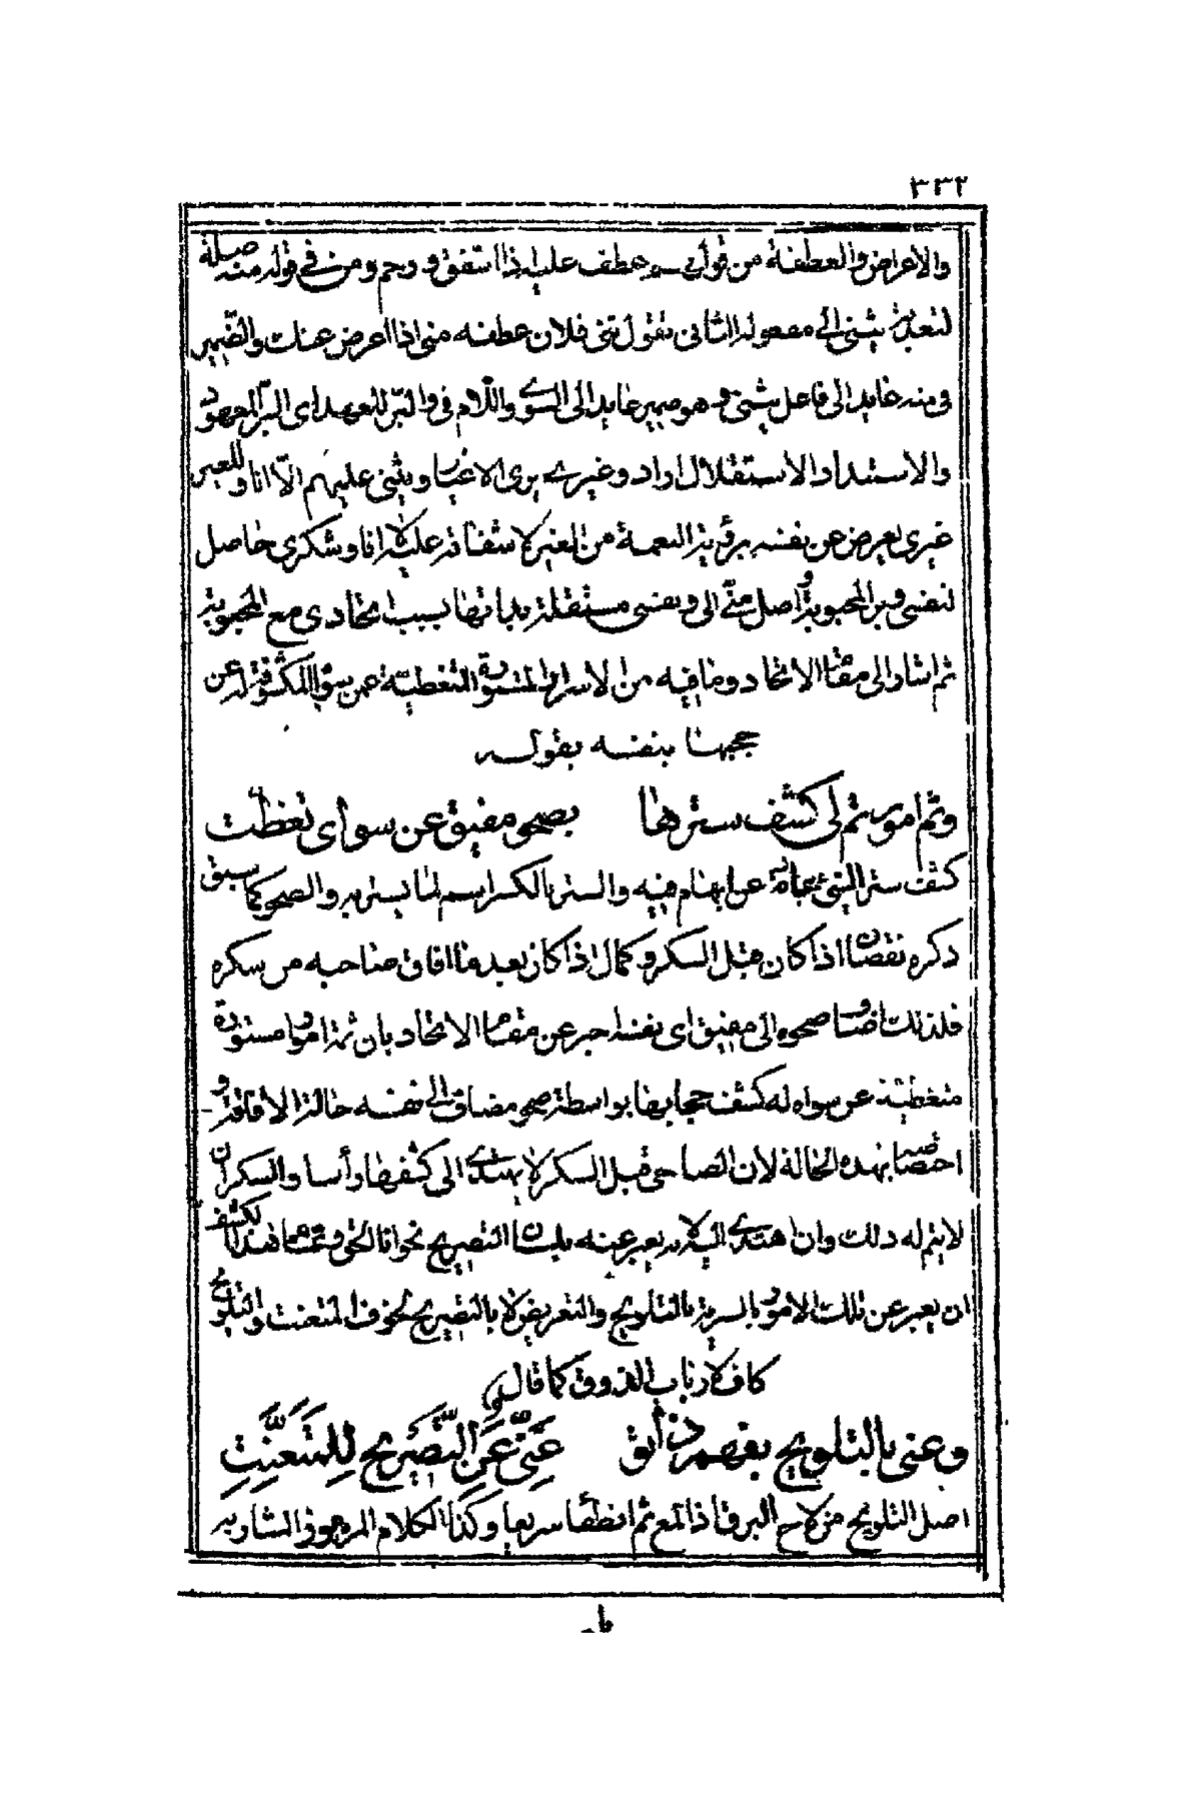 ٣٣٢
والاعراض والعطفة من قولهم عطف عليه اذا اشفق ورحم ومن في قوله منه صلة
لتعدية يثنى الى مفعوله الثانى تقول ثنى فلان عطفه منى اذا اعرض عنك والضمير
فى منه عايد الى فاعل يثنى وهو ضمير عايد الى السوى واللام فى والبر للعهد اى البر المعهود
والاستبداد الاستقلال اراد وغيرى يرى الاغيار ويثنى عليهم الا انا والمعبر
غيرى يعرض عن نفسه برؤية النعمة من الغير لا شفاقه عليه لا انا وشكرى حاصل
لنفسى وبر المحبوبة واصل منى الى ونفسى مستقلة بذاتها بسبب اتحادى مع المحبوبة
ثم اشار الى مقام الاتحاد وما فيه من الاسرار المستورة المتغطية عمن سواه المكشوفة له عن
حجبها بنفسه بقوله
وثم امور تم لى كشف سترها بصحو مفيق عن سواى تغطت
كشف ستر الشئ عبارة عن ابهام فيه والستر بالكسر اسم لما يستر به والصحو كما سبق
ذكره نقصان اذا كان قبل السكر وكمال اذا كان بعد ما افاق صاحبه من سكره
فلذلك اضاف صحوه الى مفيق اى نفسه اخبر عن مقام الاتحاد بان ثمة امورا مستورة
متغطية عن سواه له كشف حجابها بواسطة صحو مضاف الى نفسه حالة الافاقة و
اختصاصه بهذه الحالة لان الصاحى قبل السكر لا يهتدى الى كشفها رأسا والسكران
لا يتم له ذلك وان اهتدى اليه لانه يعبر عنه بلسان التصريح نحو انا الحق وتمام هذا الكشف
ان يعبر عن تلك الامور بالسرية بالتلويح والتعريض لا بالتصريح لخوف المتعنت والتلويح
كاف لارباب الذوق كما قال
وعنى بالتلويح يفهم ذائق غَنِىٌّ عَنِ التَّصْرِيحِ لِلمُتَعَنِّتِ
اصل التلويح من لاح البرق اذا لمع ثم انطفأ سريعا وكذا الكلام المرموز المشار به